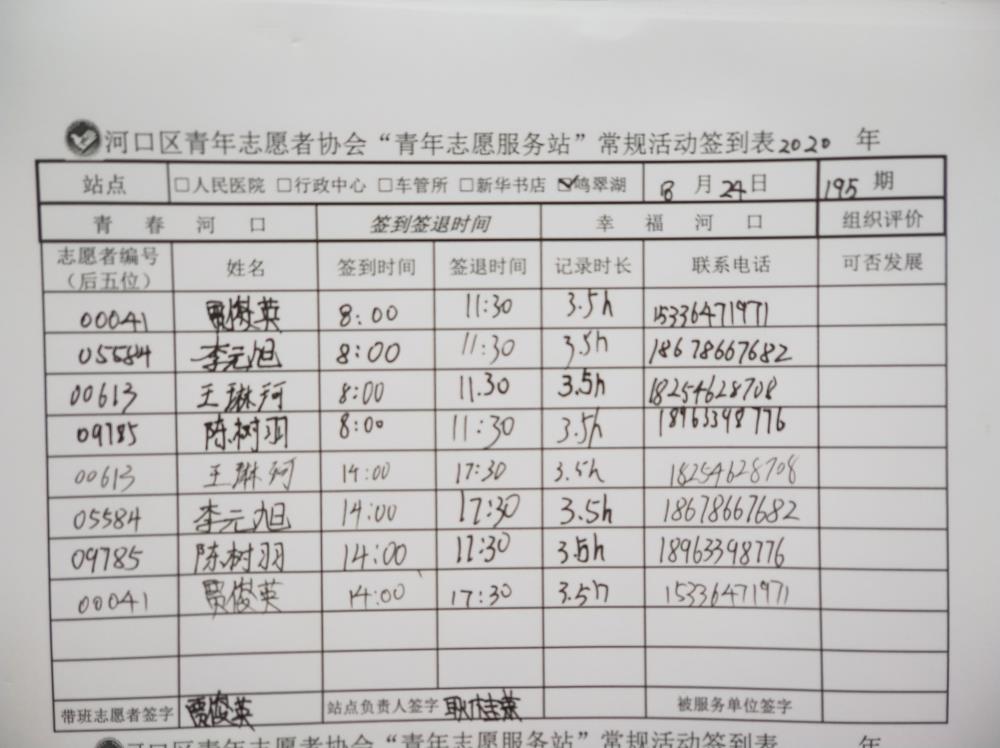 河口区青年志愿者协会“青年志愿服务站”常规活动签到表2020 年
站点 □人民医院 □行政中心 □车管所 □新华书店 ☑鸣翠湖 8 月 24 日 195 期
青 春 河 口 签到签退时间 幸 福 河 口 组织评价
志愿者编号（后五位） 姓名 签到时间 签退时间 记录时长 联系电话 可否发展
00041 贾俊英 8:00 11:30 3.5h 15336471971
05584 李元旭 8:00 11:30 3.5h 18678667682
00613 王琳珂 8:00 11.30 3.5h 18254628708
09785 陈树羽 8:00 11:30 3.5h 18963398776
00613 王琳珂 14:00 17:30 3.5h 18254628708
05584 李元旭 14:00 17:30 3.5h 18678667682
09785 陈树羽 14:00 17:30 3.5h 18963398776
00041 贾俊英 14:00 17:30 3.5h 15336471971
带班志愿者签字 贾俊英 站点负责人签字 耿桂英 被服务单位签字
河口区青年志愿者协会“青年志愿服务站”常规活动签到表 年